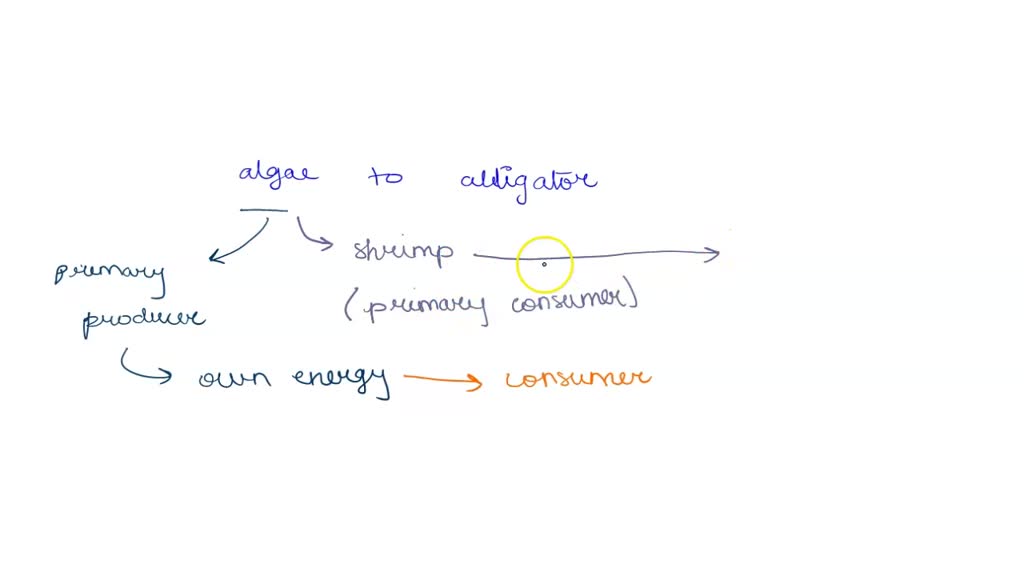 algae to alligator
shrimp
primary
(primary consumer)
producer
own energy consumer